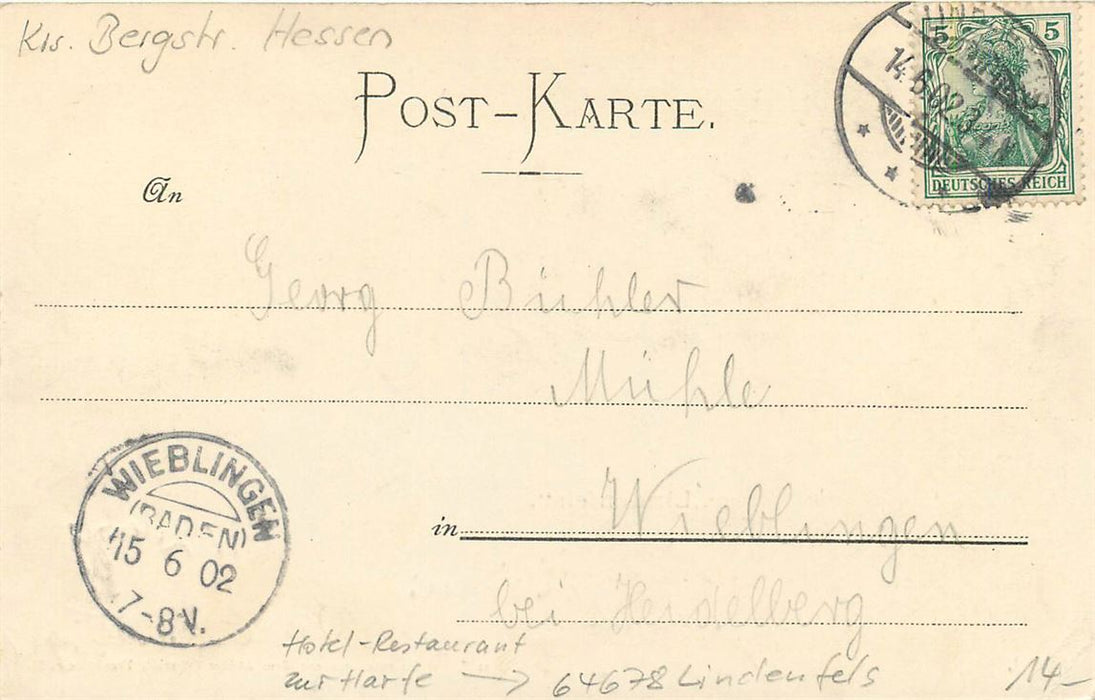 Krs. Bergstr. Hessen
POST-KARTE.
5 5
14.6.02.
DEUTSCHES REICH
An
Georg Bühler
Mühle
WIEBLINGEN
(BADEN)
15 6 02
7-8V.
in Wieblingen
bei Heidelberg
Hotel-Restaurant
zur Harfe → 64678 Lindenfels
14-